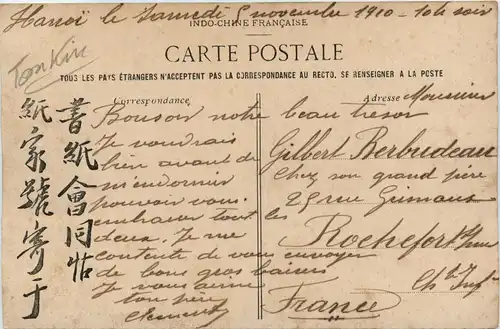 Hanoï le Samedi 5 novembre 1910 - 10h soir
INDO-CHINE FRANÇAISE
Tonkin
CARTE POSTALE
TOUS LES PAYS ÉTRANGERS N'ACCEPTENT PAS LA CORRESPONDANCE AU RECTO, SE RENSEIGNER A LA POSTE
Correspondance
Bonsoir notre beau tresor
Je voudrais
bien avant de
m'endormir
pouvoir vous
embrasser tout
deux. Je me
contente de vous envoyer
de bons gros baisers
Je vous aime
ton père
Clement
Adresse
Monsieur
Gilbert Berbudeau
Chez son grand père
29 rue
Rochefort s/mer
Chte Infre
France
書紙會同帖
紙家號寄于